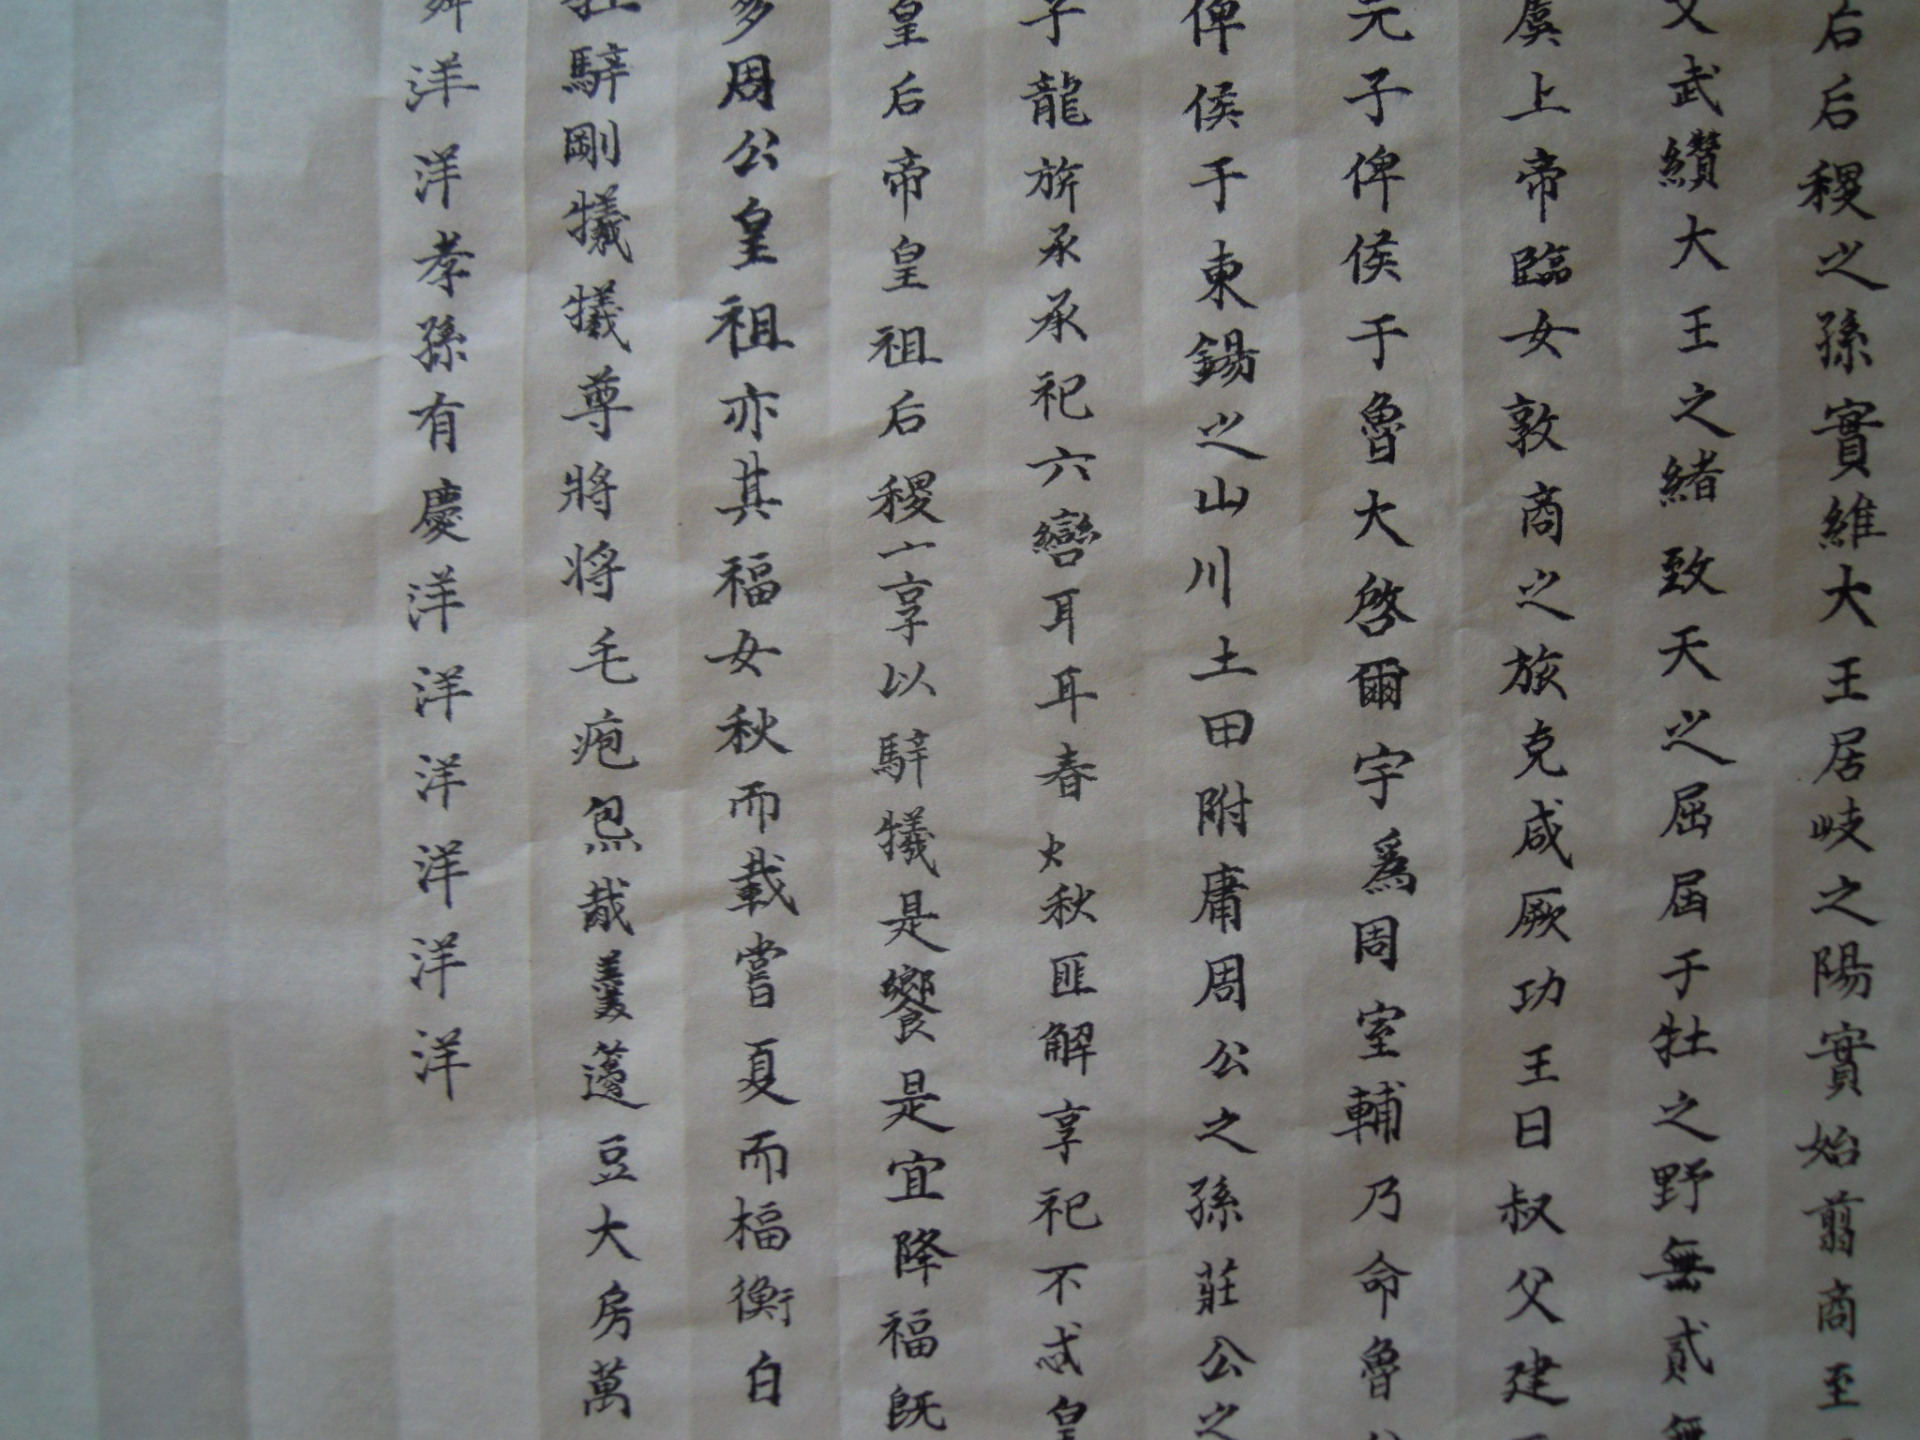 后后稷之孫實維大王居岐之陽實始翦商至
文武纘大王之緒致天之屆屆于牡之野無貳無
虞上帝臨女敦商之旅克咸厥功王曰叔父建
元子俾侯于魯大啓爾宇爲周室輔乃命魯
俾侯于東錫之山川土田附庸周公之孫莊公之
子龍旂承承祀六轡耳耳春火秋匪解享祀不忒皇
皇后帝皇祖后稷亠享以騂犧是饗是宜降福既
多周公皇祖亦其福女秋而載嘗夏而楅衡白
牡騂剛犧犧尊將將毛炰胾羹籩豆大房萬
舞洋洋孝孫有慶洋洋洋洋洋洋